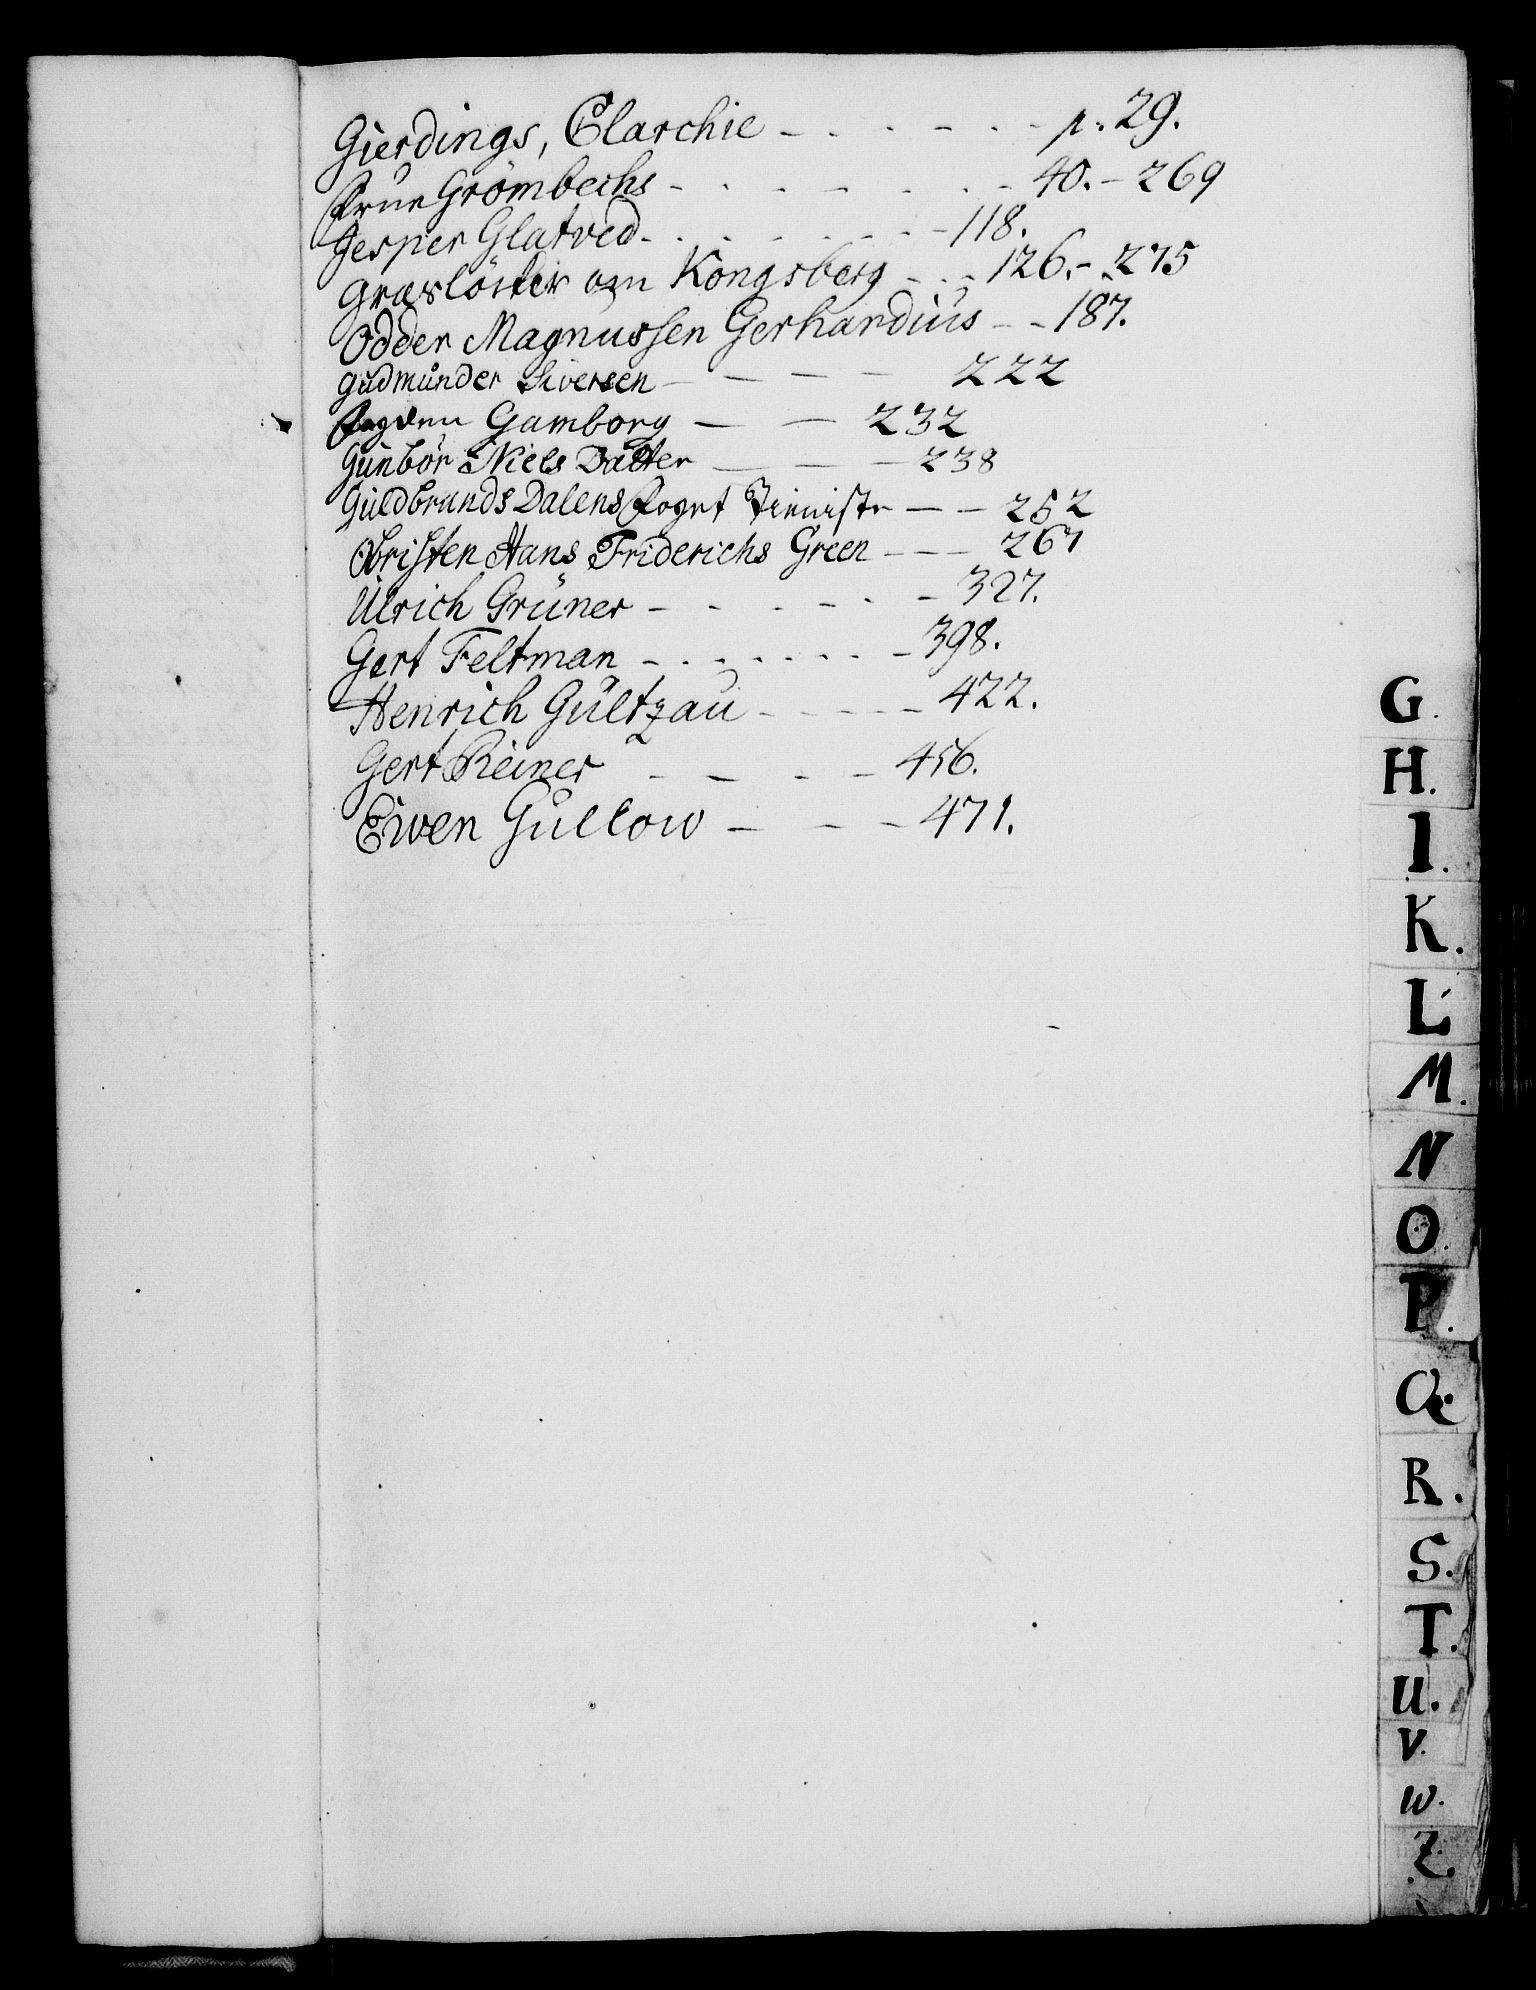 Gierdings, Clarchie - - - - - - p. 29.
Frue Grömbechs - - - - - - 40. - 269
Jesper Glatved - - - - - - 118.
Græslöcker om Kongsberg - - - 126. - 275
Odder Magnussen Gerhardius - - 187.
Gudmunder Siversen - - - - 222
Fogden Gamborg - - 232
Gunbor Niels Datter - - - 238
GuldbrandsDalens Foget - - 252
Obristen Hans Friderichs Green - - - 267
Ulrich Grüner - - - - - - 327.
Gert Feltman - - - - - - - 398.
Henrich Gültzau - - - - - 422.
Gert Reiner - - - - 456.
Ewen Gullow - - - 471.
G.
H.
I.
K.
L.
M.
N
O.
P.
Q.
R.
S.
T.
U.
V.
W.
Z.